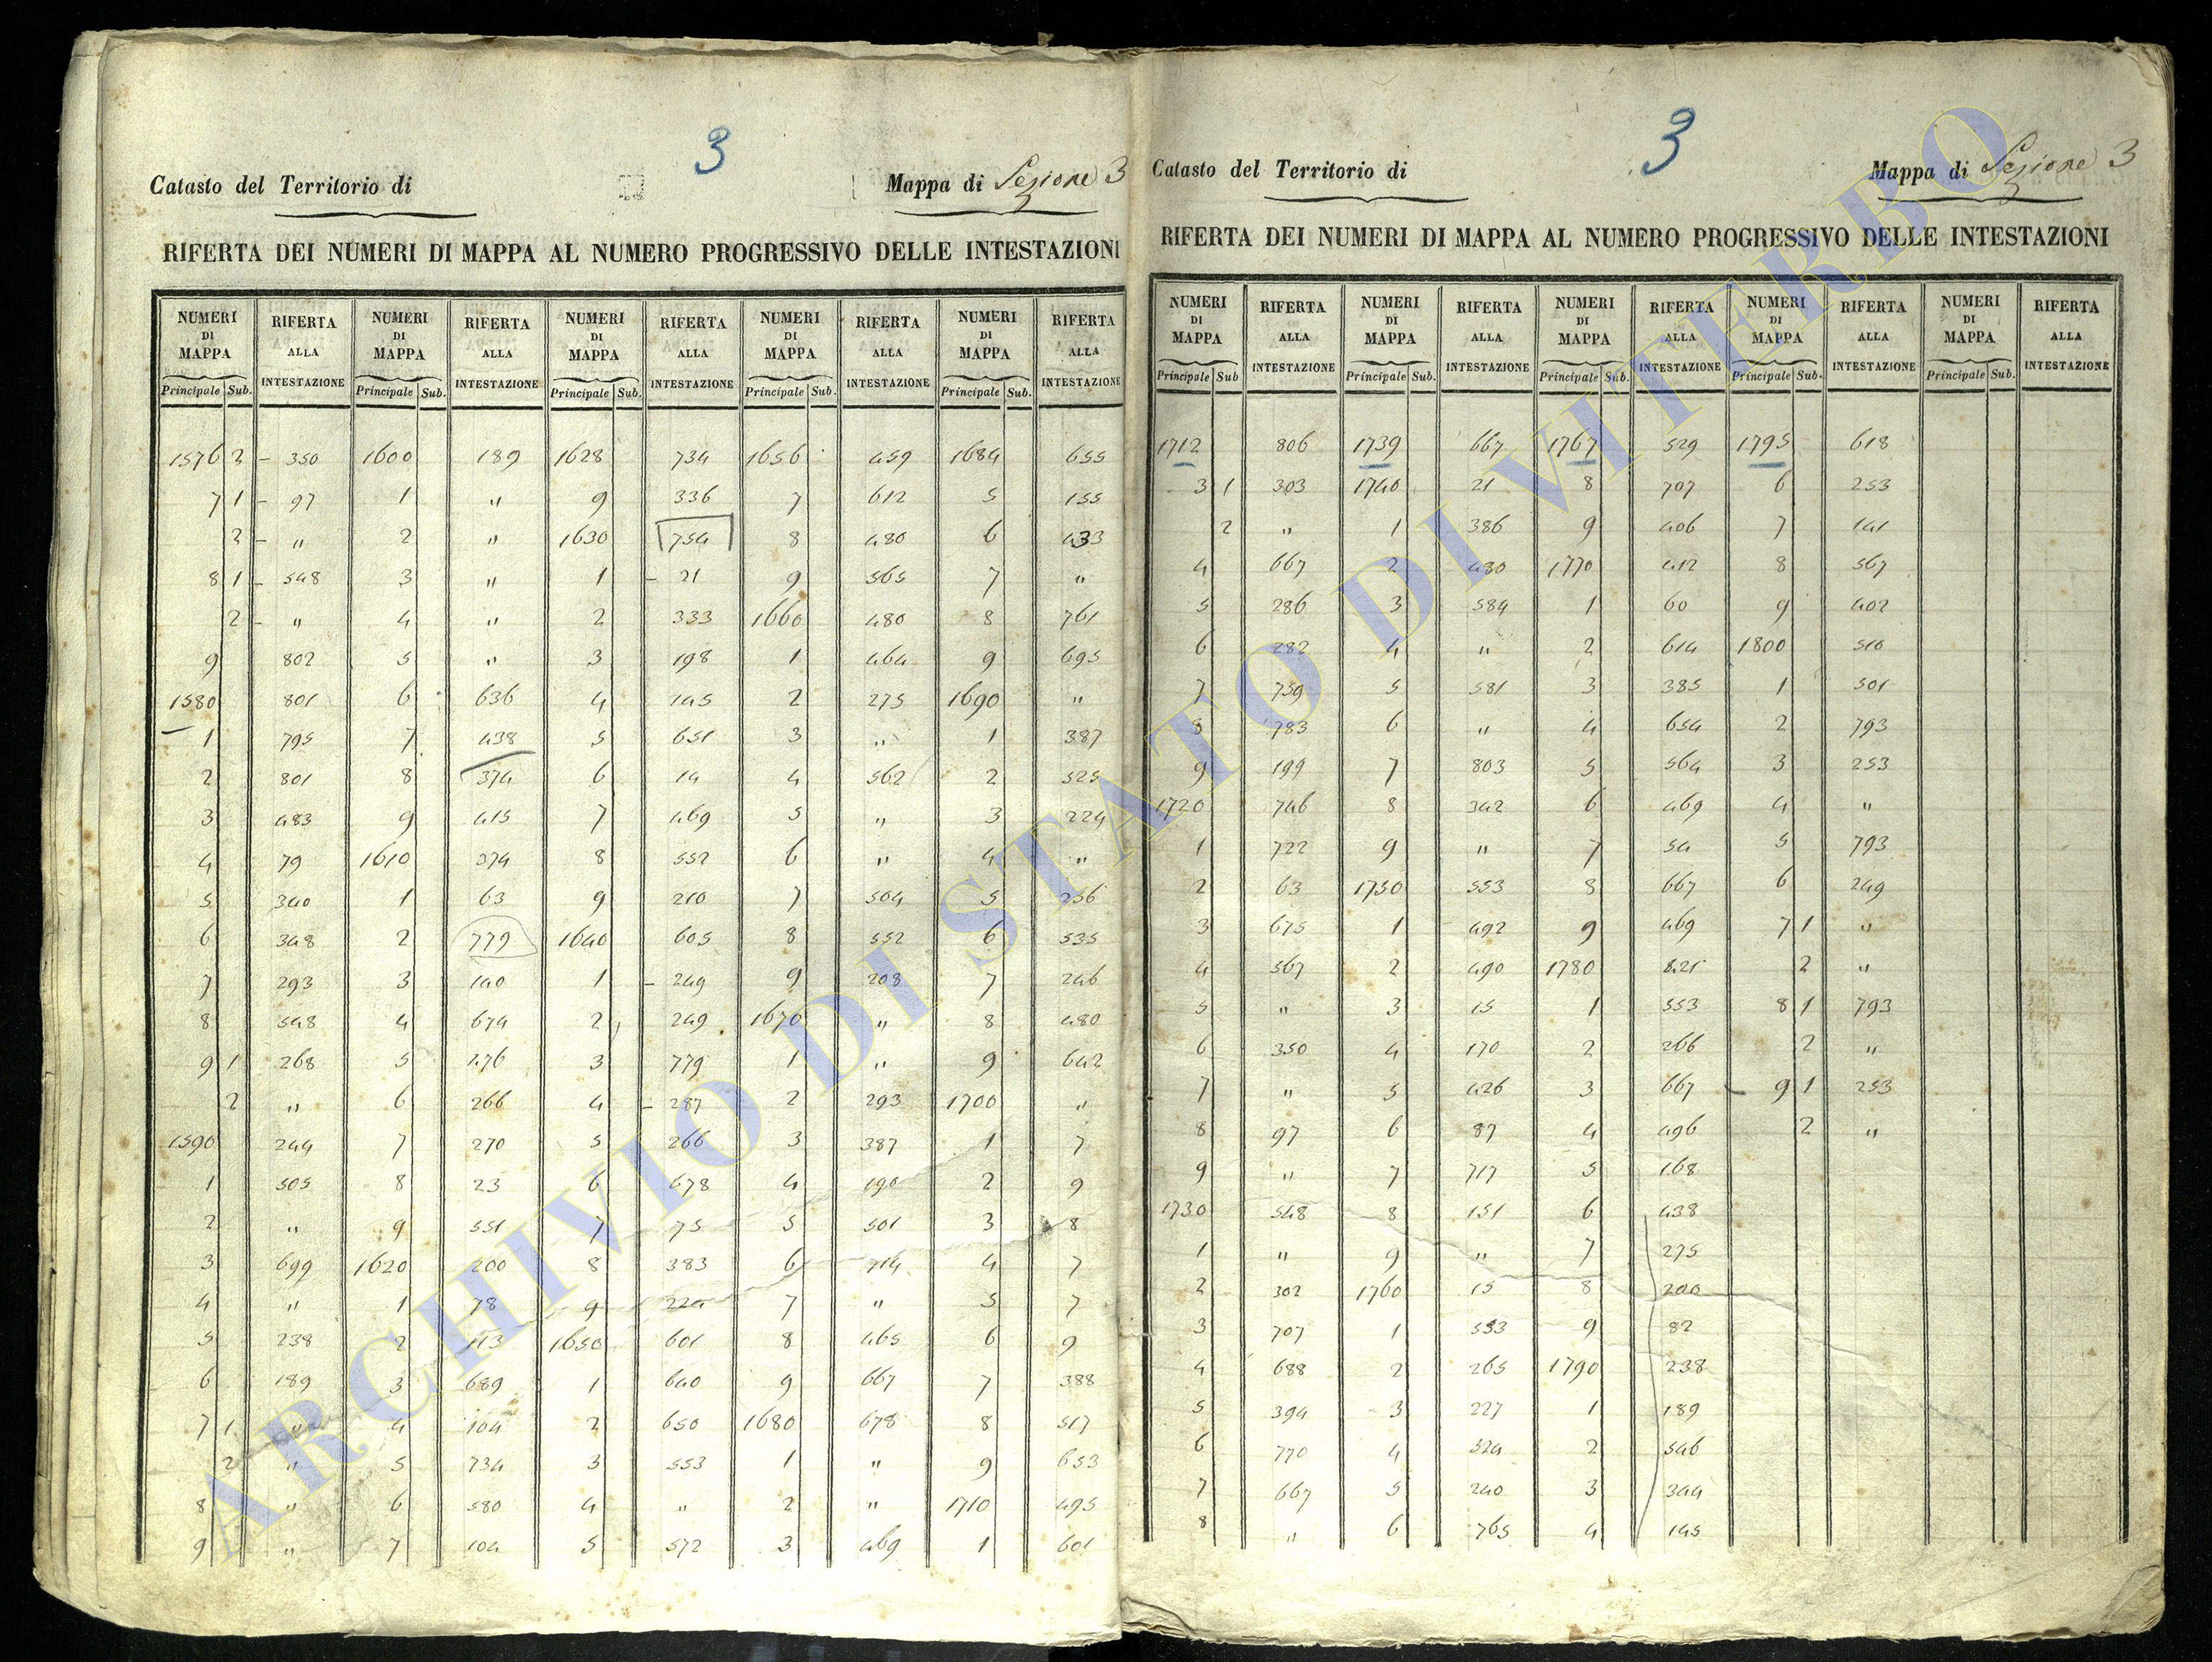 3
Catasto del Territorio di Mappa di Sezione 3
RIFERTA DEI NUMERI DI MAPPA AL NUMERO PROGRESSIVO DELLE INTESTAZIONI
NUMERI DI MAPPA RIFERTA ALLA INTESTAZIONE NUMERI DI MAPPA RIFERTA ALLA INTESTAZIONE NUMERI DI MAPPA RIFERTA ALLA INTESTAZIONE NUMERI DI MAPPA RIFERTA ALLA INTESTAZIONE NUMERI DI MAPPA RIFERTA ALLA INTESTAZIONE
Principale Sub. Principale Sub. Principale Sub. Principale Sub. Principale Sub.
1576 2 - 350 1600 189 1628 734 1656 459 1684 655
7 1 - 97 1 " 9 336 7 612 5 155
2 - " 2 " 1630 754 8 480 6 433
8 1 - 548 3 " 1 - 21 9 565 7 "
2 - " 4 " 2 333 1660 480 8 761
9 802 5 " 3 198 1 464 9 695
1580 801 6 636 4 145 2 275 1690 "
1 795 7 438 5 651 3 " 1 387
2 801 8 374 6 14 4 562 2 525
3 483 9 415 7 469 5 " 3 224
4 79 1610 374 8 552 6 " 4 "
5 340 1 63 9 210 7 504 5 256
6 348 2 779 1640 605 8 552 6 535
7 293 3 140 1 - 249 9 208 7 246
8 548 4 674 2 249 1670 " 8 480
9 1 268 5 476 3 779 1 " 9 642
2 " 6 266 4 - 287 2 293 1700 "
1590 244 7 270 5 266 3 387 1 7
1 505 8 23 6 678 4 190 2 9
2 " 9 551 7 75 5 501 3 8
3 699 1620 200 8 383 6 714 4 7
4 " 1 78 9 224 7 " 5 7
5 238 2 113 1650 601 8 465 6 9
6 189 3 689 1 640 9 667 7 388
7 1 " 4 104 2 650 1680 678 8 517
2 " 5 734 3 553 1 " 9 653
8 " 6 580 4 " 2 " 1710 495
9 " 7 104 5 572 3 469 1 601
3
Catasto del Territorio di Mappa di Sezione 3
RIFERTA DEI NUMERI DI MAPPA AL NUMERO PROGRESSIVO DELLE INTESTAZIONI
NUMERI DI MAPPA RIFERTA ALLA INTESTAZIONE NUMERI DI MAPPA RIFERTA ALLA INTESTAZIONE NUMERI DI MAPPA RIFERTA ALLA INTESTAZIONE NUMERI DI MAPPA RIFERTA ALLA INTESTAZIONE NUMERI DI MAPPA RIFERTA ALLA INTESTAZIONE
Principale Sub Principale Sub. Principale Sub. Principale Sub. Principale Sub.
1712 806 1739 667 1767 529 1795 618
3 1 303 1740 21 8 707 6 253
2 " 1 386 9 406 7 141
4 667 2 430 1770 412 8 567
5 286 3 584 1 60 9 402
6 282 4 " 2 614 1800 510
7 759 5 581 3 385 1 501
8 783 6 " 4 654 2 793
9 199 7 803 5 564 3 253
1720 746 8 342 6 469 4 "
1 722 9 " 7 54 5 793
2 63 1750 553 8 667 6 249
3 675 1 492 9 469 7 1 "
4 567 2 490 1780 2 "
5 " 3 15 1 553 8 1 793
6 350 4 170 2 266 2 "
7 " 5 426 3 667 9 1 253
8 97 6 87 4 496 2 "
9 " 7 717 5 168
1730 548 8 151 6 438
1 " 9 " 7 275
2 302 1760 15 8 200
3 707 1 553 9 82
4 688 2 265 1790 238
5 394 3 227 1 189
6 770 4 524 2 546
7 667 5 240 3 344
8 " 6 765 4 145
ARCHIVIO DI STATO DI VITERBO